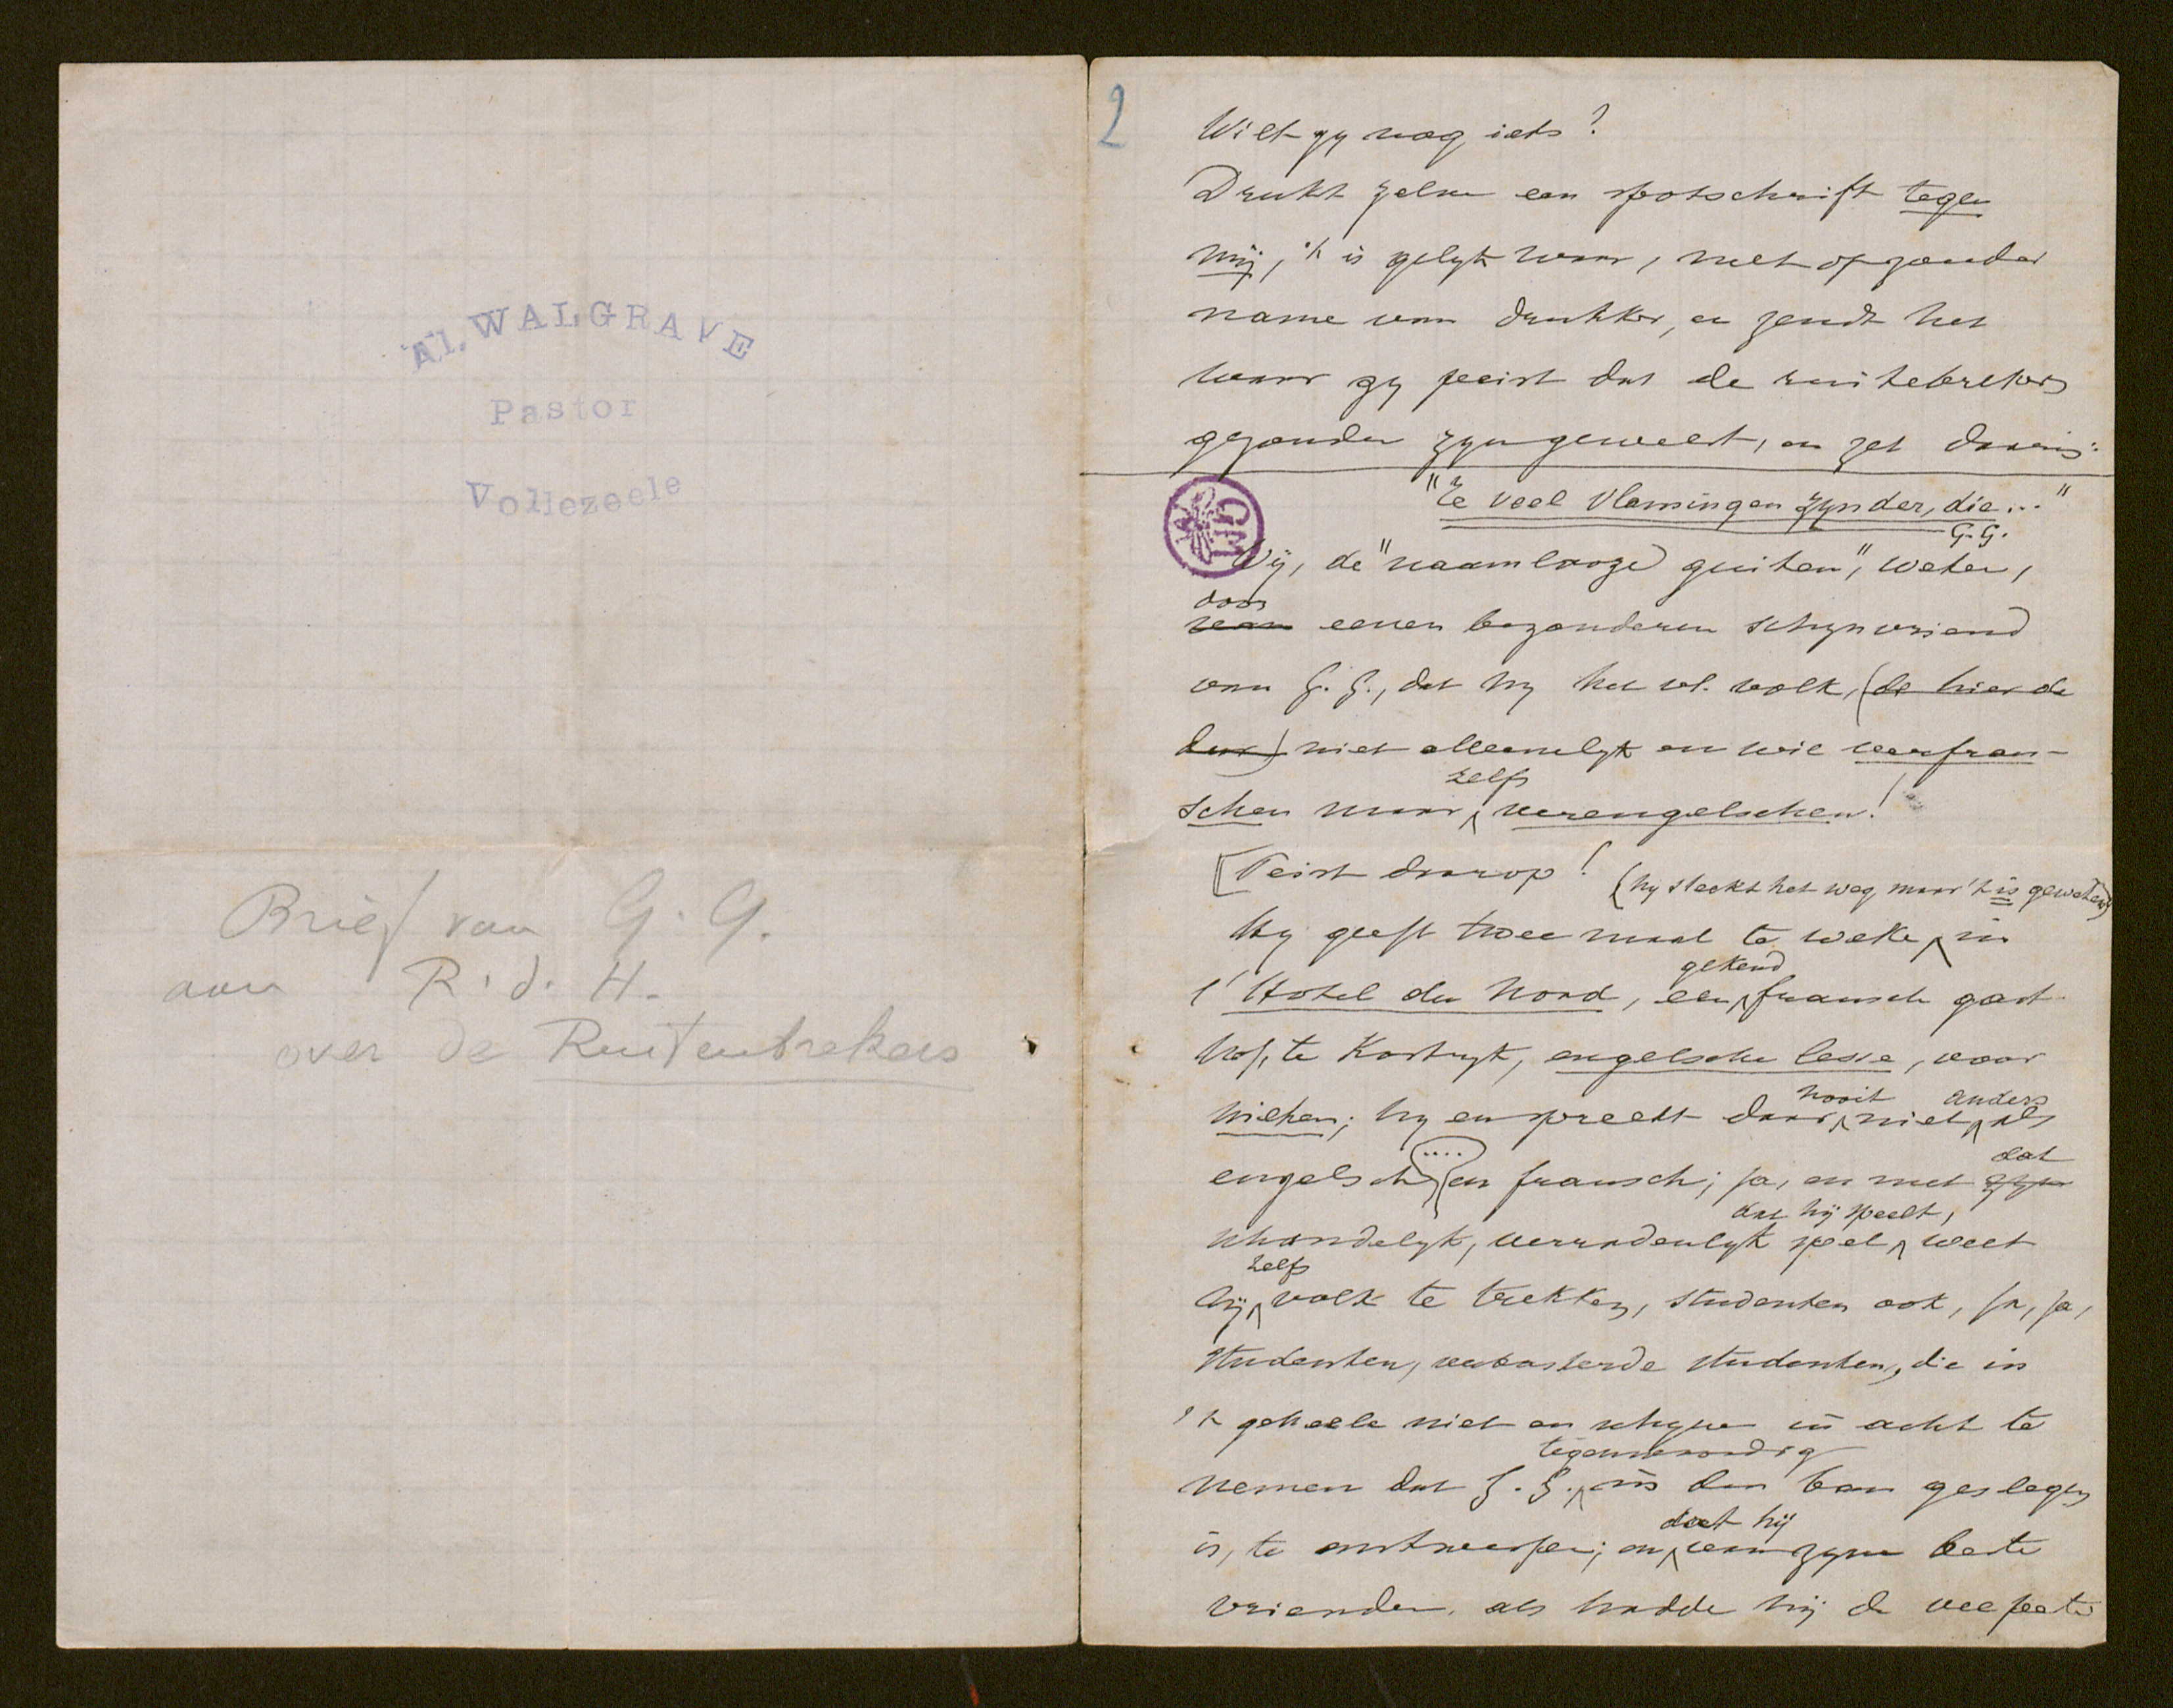 Al. WALGRAVE
Pastor
Vollezeele
Brief van G. G.
aan R. d. H.
over de Ruitenbrekers
2
Wilt gy nog iets?
Drukt zelve een spotschrift tegen
mij, 't is gelyk waar, met of zonder
name van drukker, en zendt het
waar gy peist dat de ruitebrekers
gezonden zyn geweest, en zet daarin:
"Te veel Vlamingen zynder, die..."
G. G.
Wÿ, de "naamlooze guiten", weten,
door
van eenen bezonderen schynvriend
van G. G., dat hy het vl. volk, (de hier de
niet alleenelyk en wil verfran-
zelfs
schen maar verengelschen!
[Peist daarop! (hy steekt het weg, maar 't is geweten)
Hy geeft twee maal te weke, in
gekend
l'Hotel du Nord, een fransch gast
hof, te Kortryk, engelsche lesse, voor
nooit anders
nieten; hy en spreekt daar niet als
....
dat
engelsch en fransch; ja, en met zyn
dat hÿ speelt,
schandelyk, verradenlyk spel weet
zelfs
hÿ volk te trekken, studenten ook, ja, ja,
studenten, verbasterde studenten, die in
't geheele niet en schynen in acht te
tegenwoordig
nemen dat G. G. in den ban geslegen
doet hÿ
is, te ; en van zyne beste
vrienden. als hadde hÿ de veepeste